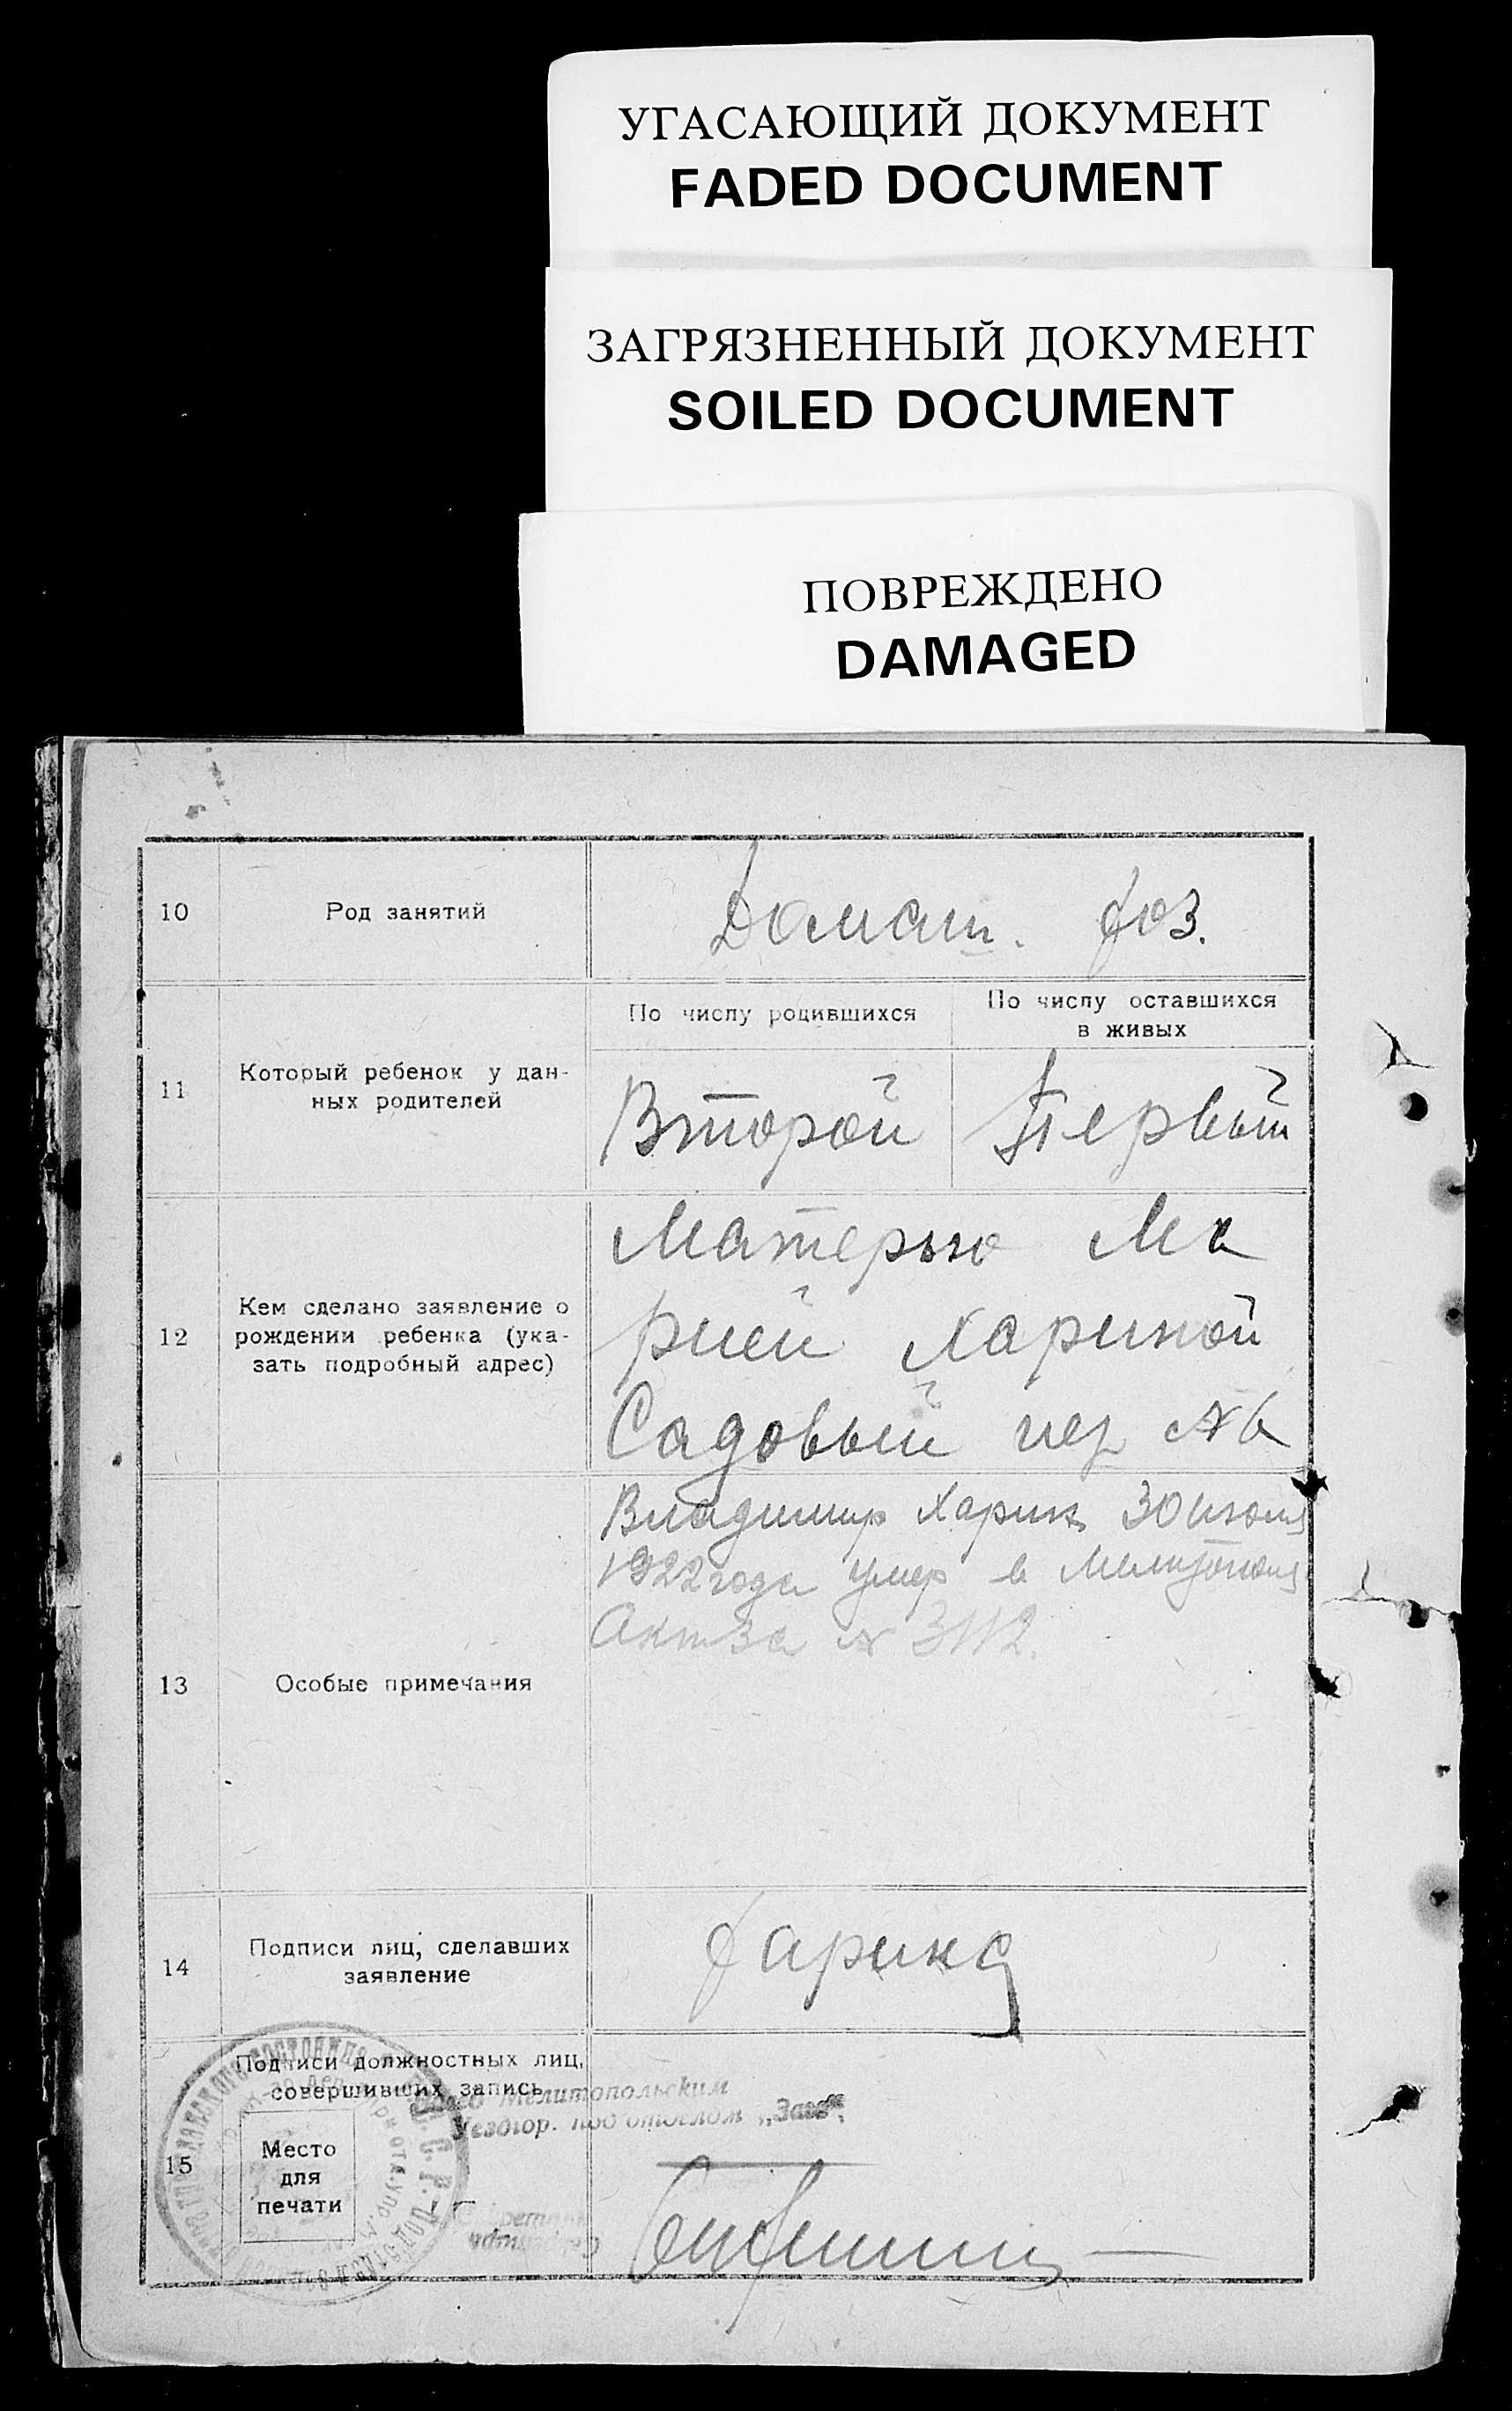 УГАСАЮЩИЙ ДОКУМЕНТ
FADED DOCUMENT
ЗАГРЯЗНЕННЫЙ ДОКУМЕНТ
SOILED DOCUMENT
ПОВРЕЖДЕНО
DAMAGED
10
Род занятий
Домаш. хоз.
11
Который ребенок у дан-
ных родителей
По числу родившихся
По числу оставшихся
в живых
Второй
Первый
12
Кем сделано заявление о
рождении ребенка (ука-
зать подробный адрес)
Матерью Ма
рией Хариной
Садовый пер
13
Особые примечания
Владимир Харин 30 июля
1922 года умер в Мелитополе
Акт за № 3112.
14
Подписи лиц, сделавших
заявление
Харина
15
Подписи должностных лиц,
совершивших запись
Место
для
печати
Мелитопольским
Уездгор. под'отделом „Загс“.